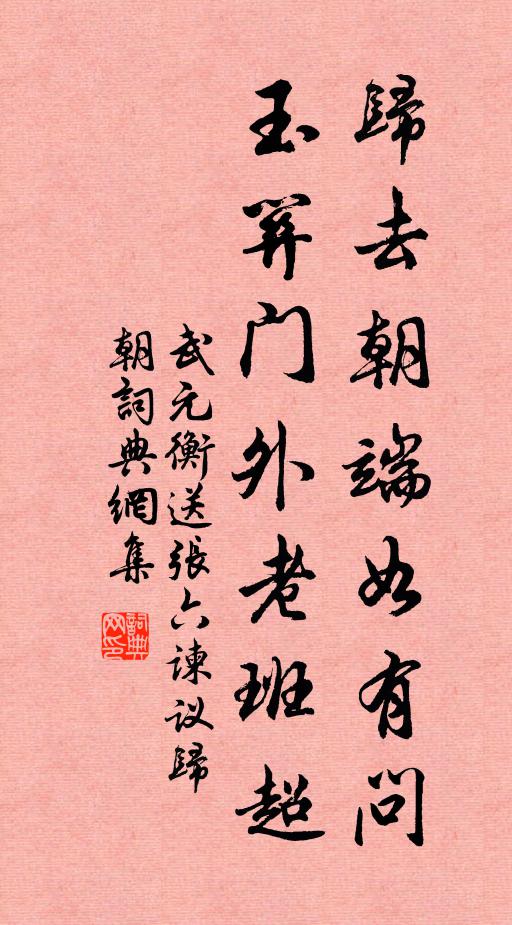 歸去朝端如有問
玉關門外老班超
武元衡送張六諫议歸
朝詞典網集
詞典网印